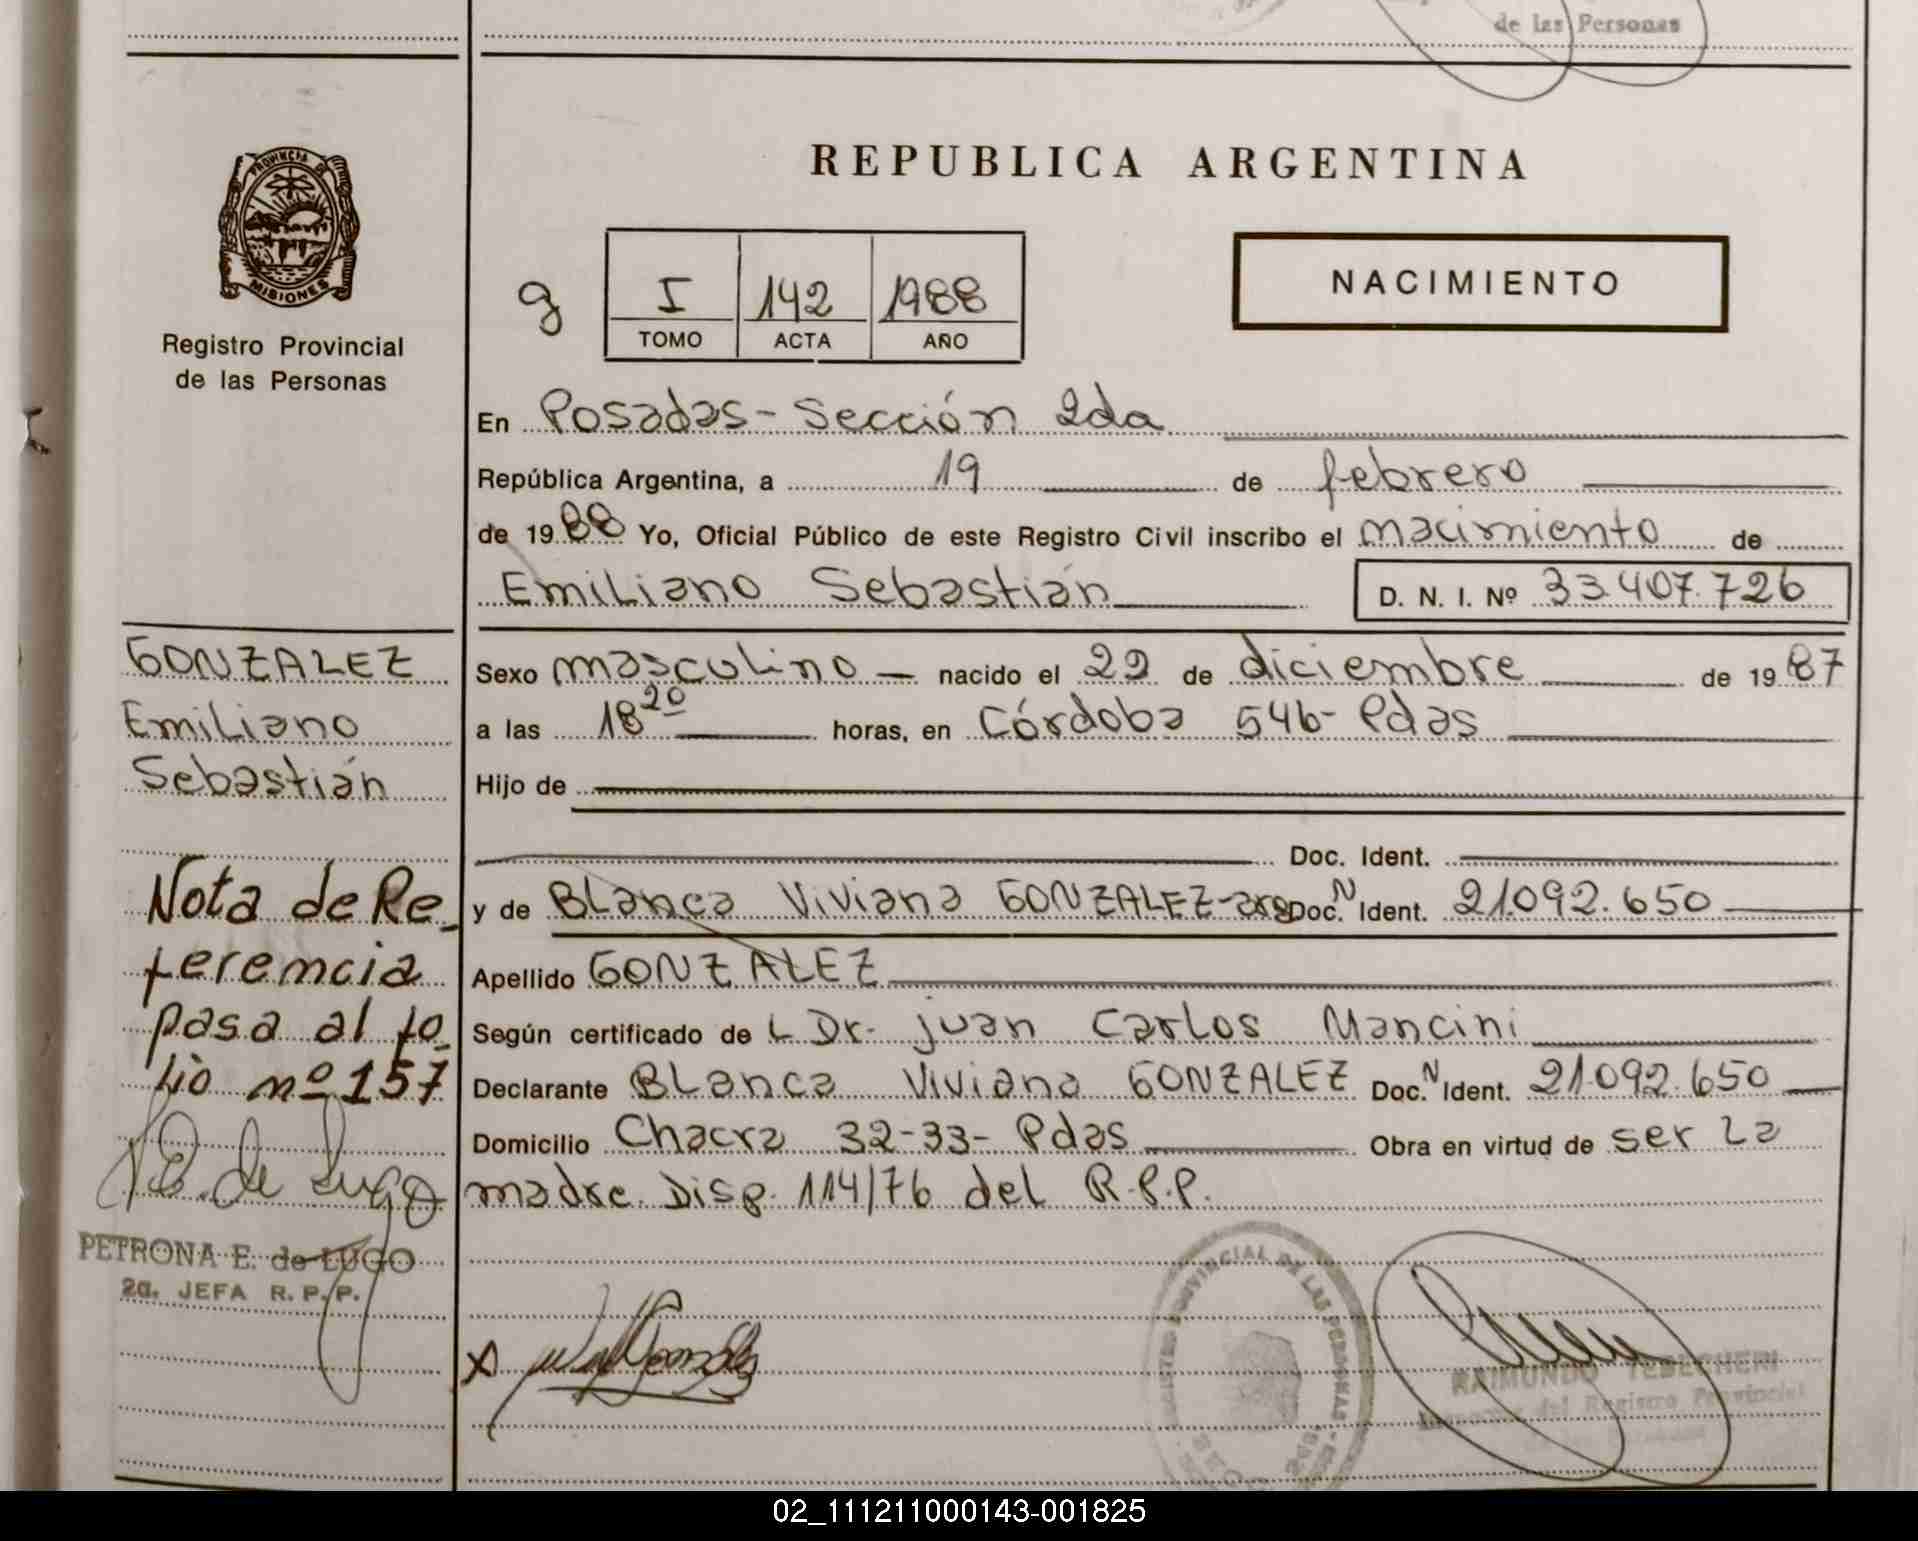 de las Personas
PROVINCIA DE
MISIONES
Registro Provincial
de las Personas
REPUBLICA ARGENTINA
g
I 142 1988
TOMO ACTA AÑO
NACIMIENTO
En Posadas - Sección 2da
República Argentina, a 19 de febrero
de 1988 Yo, Oficial Público de este Registro Civil inscribo el nacimiento de
Emiliano Sebastián D. N. I. Nº 33.407.726
GONZALEZ
Emiliano
Sebastián
Sexo masculino — nacido el 29 de diciembre de 1987
a las 18 20 horas, en Córdoba 546 - Pdas
Hijo de
Doc. Ident.
y de Blanca Viviana GONZALEZ - arg Doc. N Ident. 21.092.650
Apellido GONZALEZ
Según certificado de L Dr. Juan Carlos Mancini
Declarante Blanca Viviana GONZALEZ Doc. N Ident. 21.092.650
Domicilio Chacra 32-33- Pdas Obra en virtud de ser La
madre. Disp. 114/76 del R.P.P.
Nota de Re_
ferencia
pasa al fo_
lio nº 157
P.E. de Lugo
PETRONA E. de LUGO
2a. JEFA R. P. P.
X
REGISTRO PROVINCIAL DE LAS PERSONAS
RAIMUNDO
del Registro Provincial
02_111211000143-001825